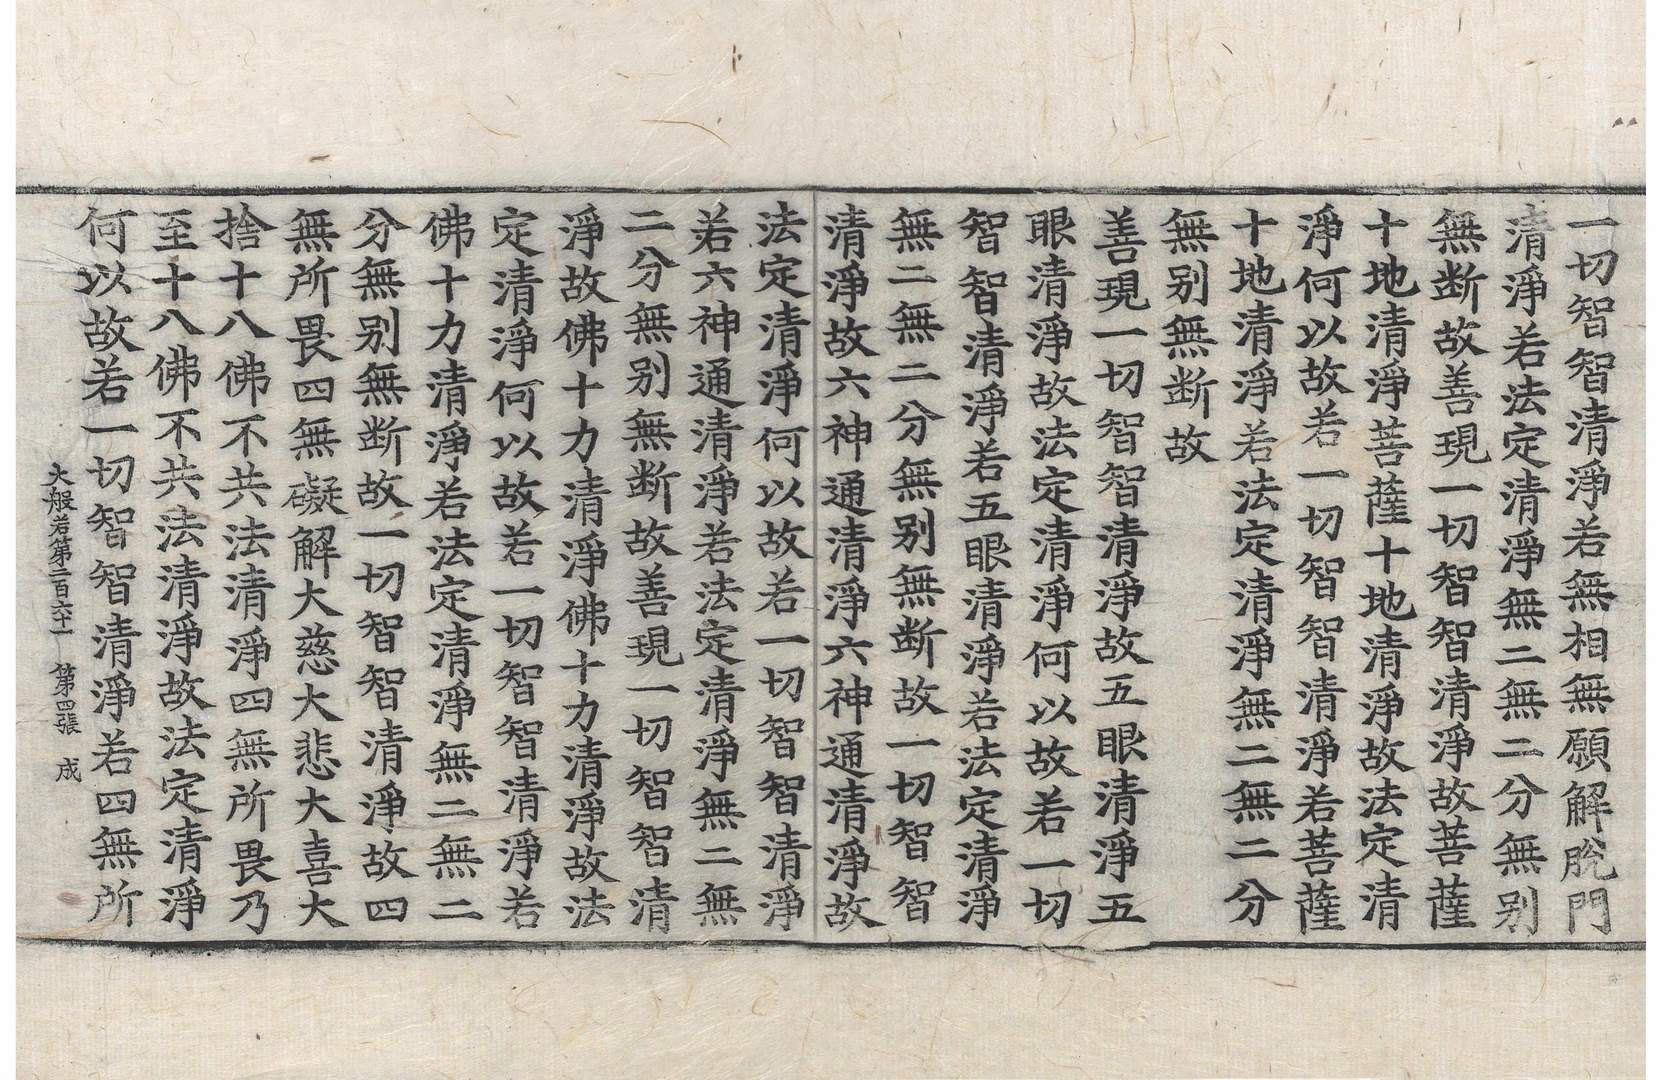 一切智智清淨若無相無願解脫門
清淨若法定清淨無二無二分無别
無断故善現一切智智清淨故菩薩
十地清淨菩薩十地清淨故法定清
淨何以故若一切智智清淨若菩薩
十地清淨若法定清淨無二無二分
無别無断故
善現一切智智清淨故五眼清淨五
眼清淨故法定清淨何以故若一切
智智清淨若五眼清淨若法定清淨
無二無二分無别無断故一切智智
清淨故六神通清淨六神通清淨故
法定清淨何以故若一切智智清淨
若六神通清淨若法定清淨無二無
二分無别無断故善現一切智智清
淨故佛十力清淨佛十力清淨故法
定清淨何以故若一切智智清淨若
佛十力清淨若法定清淨無二無二
分無别無断故一切智智清淨故四
無所畏四無礙解大慈大悲大喜大
捨十八佛不共法清淨四無所畏乃
至十八佛不共法清淨故法定清淨
何以故若一切智智清淨若四無所
大般若第二百六十一 第四張 成